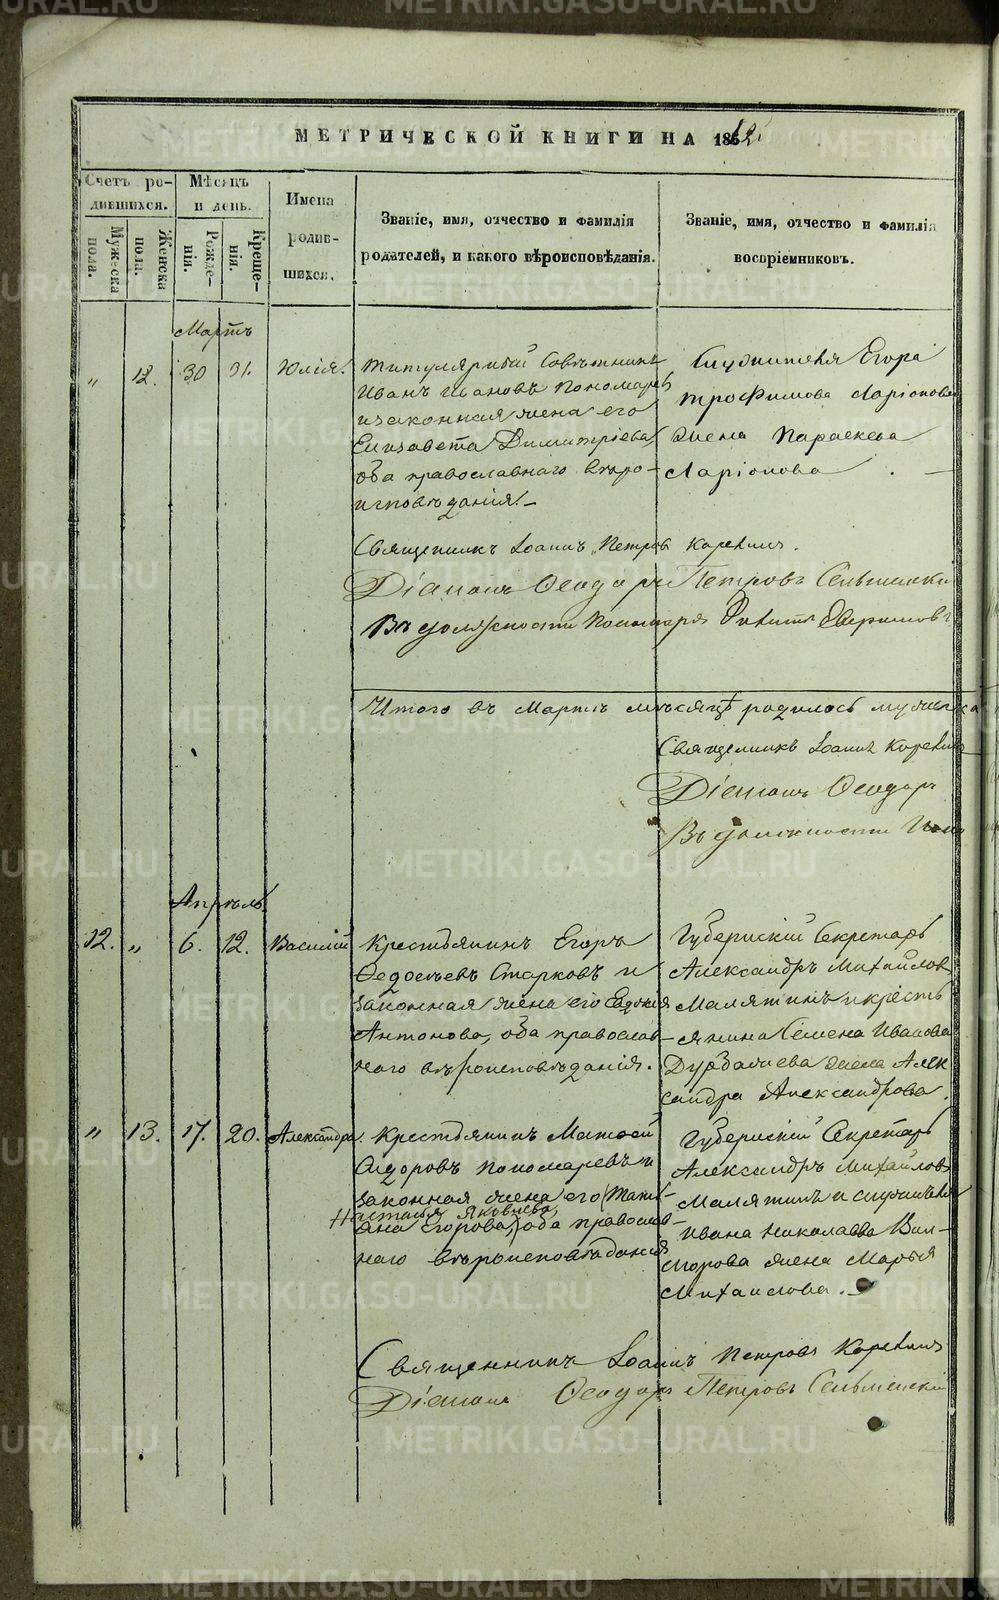 МЕТРИЧЕСКОЙ КНИГИ НА 1862
Счетъ ро-
дившихся.
Мужеска пола.
Женска пола.
Мѣсяцъ
и день.
Рожде-
нія.
Креще-
нія.
Имена
родив-
шихся.
Званіе, имя, отчество и фамилія
родателей, и какого вѣроисповѣданія.
Званіе, имя, отчество и фамилія
воспріемниковъ.
Мартъ
" 12. 30 31. Юлія.
Титулярный Совѣтникъ
Иванъ Ивановъ Пономаревъ
и законная жена его
Елизавета Димитріева,
оба православнаго вѣро-
исповѣданія.
Егора
Трофимова Ларіонова
жена Параскева
Ларіонова.
Священникъ Іоаннъ Петровъ
Діаконъ Ѳеодоръ Петровъ
Въ должности Пономаря
Итого въ Мартѣ мѣсяцѣ родилось мужеска
Священникъ Іоаннъ
Діаконъ Ѳеодоръ
Въ должности
Апрѣль.
12. " 6. 12. Василій
Крестьянинъ Егоръ
Ѳедосѣевъ Старковъ и
законная жена его Евдокия
Антонова, оба православ-
наго вѣроисповѣданія.
Губернскій Секретарь
Александръ Михайловъ
Малятинъ и кресть
янина Семена Иванова
жена Алек
сандра Александрова.
" 13. 17. 20. Александра.
Крестьянинъ Матвей
Сидоровъ Пономаревъ и
законная жена его (Тать-
Настасья Яковлева,
яна Егорова) оба православ-
наго вѣроисповѣданія
Губернскій Секретарь
Александръ Михайловъ
Малятинъ и служителя
Ивана Николаева
жена Марья
Михаилова.
Священникъ Іоаннъ Петровъ
Діаконъ Ѳеодоръ Петровъ
METRIKI.GASO-URAL.RU